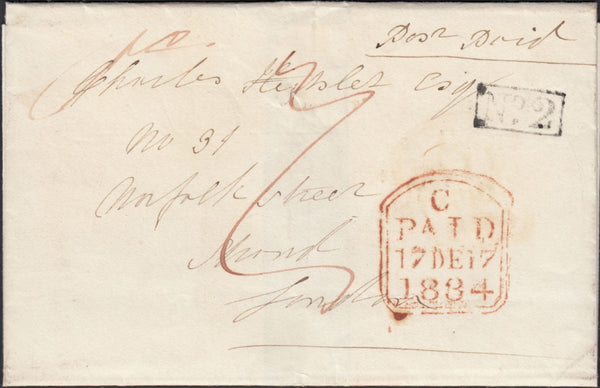 Post Paid
Charles Esqr
No 31
Norfolk Street
Strand
London
No. 2
C
PAID
17 DE 17
1834